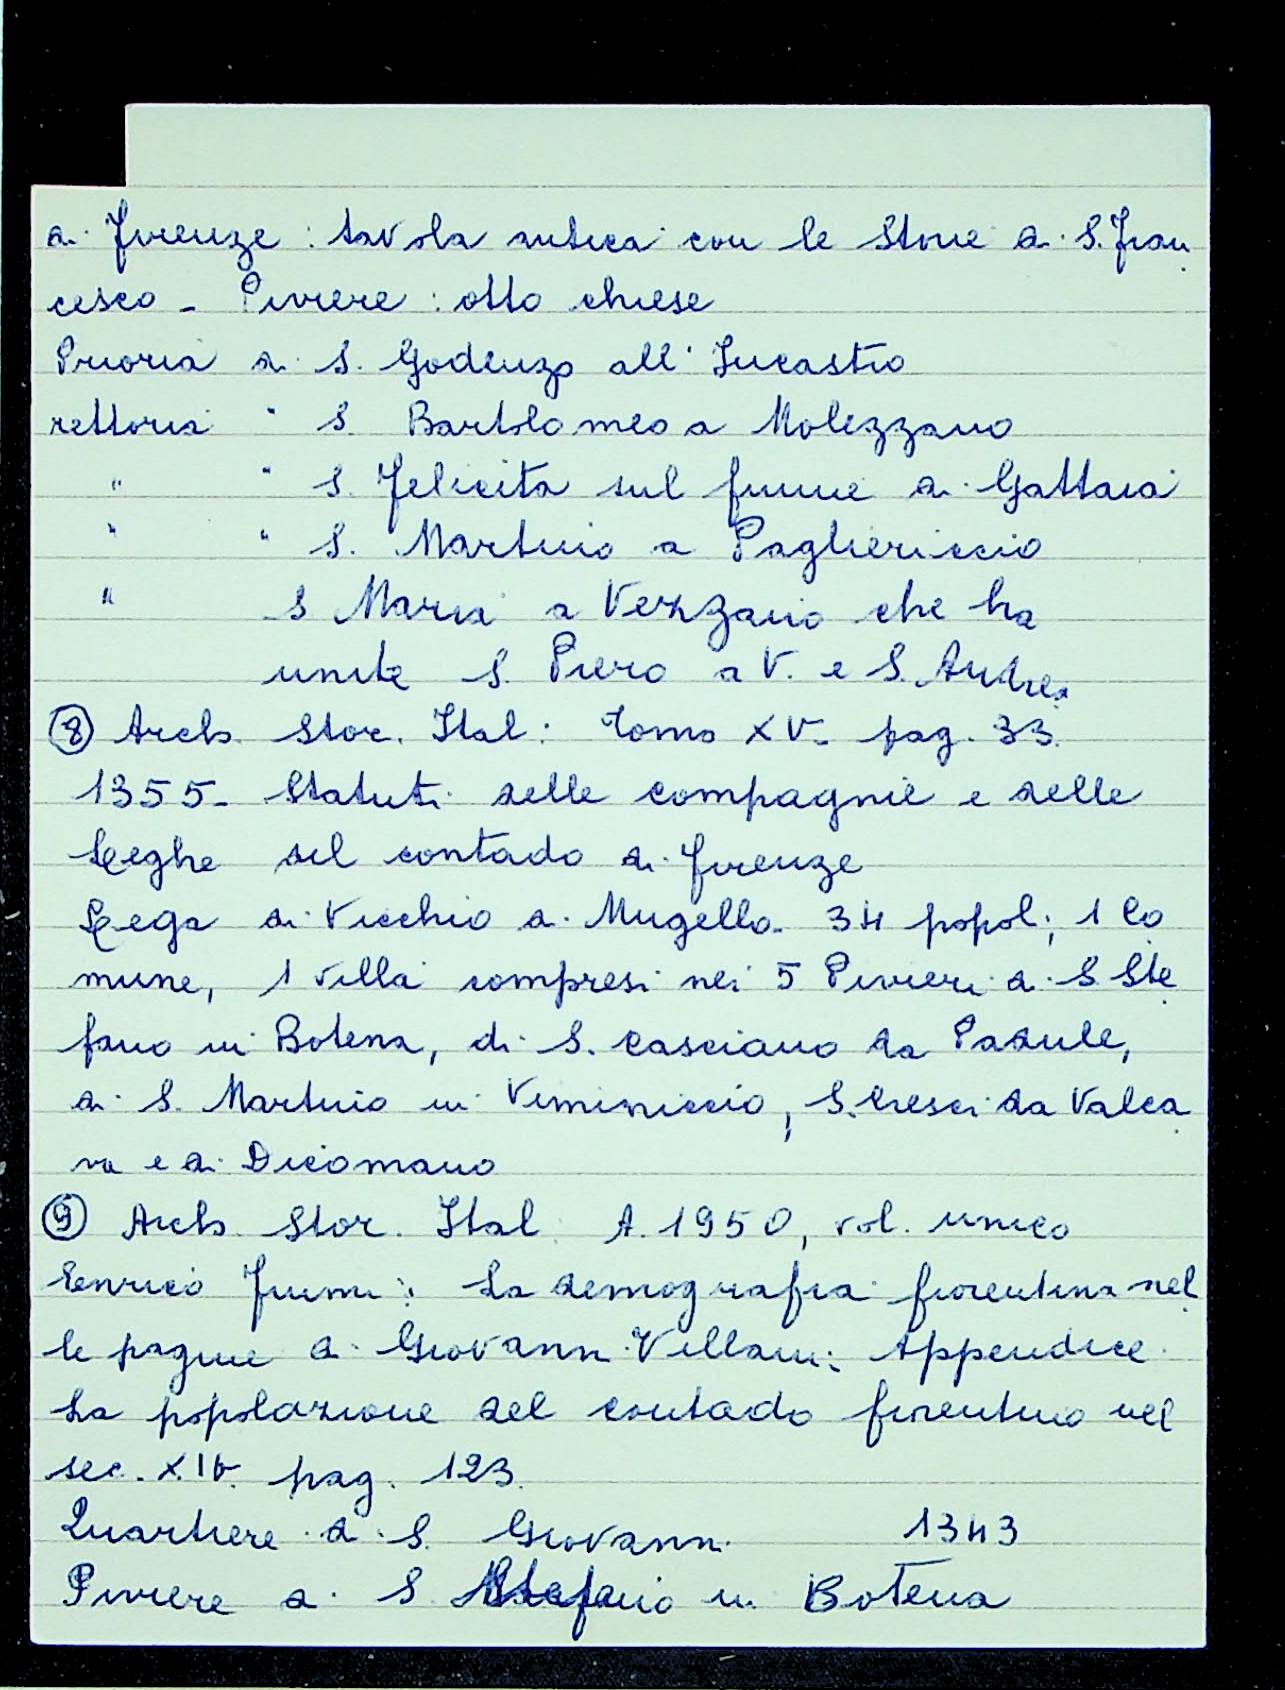 di Firenze: tavola antica con le storie di S. Fran
cesco - Piviere: otto chiese
Prioria di S. Godenzo all'Incastro
rettoria " S. Bartolomeo a Molezzano
" " S. Felicita sul fiume di Gattaia
" " S. Martino a Pagliericcio
" S Maria a Vezzano che ha
unite S. Piero a V. e S. Andrea
⑧ Arch. Stor. Ital: Tomo XV. pag. 33.
1355- Statuti delle compagnie e delle
Leghe del contado di Firenze
Lega di Vicchio di Mugello. 34 popoli, 1 Co
mune, 1 villa compresi nei 5 Pivieri di S Ste
fano in Botena, di S. Casciano da Padule,
di S. Martino in Viminiccio, S. Cresci da Valca
va e di Dicomano
⑨ Arch. Stor. Ital. A. 1950, vol. unico
Enrico Fiumi: La demografia fiorentina nel
le pagine di Giovanni Villani: Appendice
La popolazione del contado fiorentino nel
sec. XIV. pag. 123.
Quartiere di S. Giovanni 1343
Piviere di S. Stefano in Botena